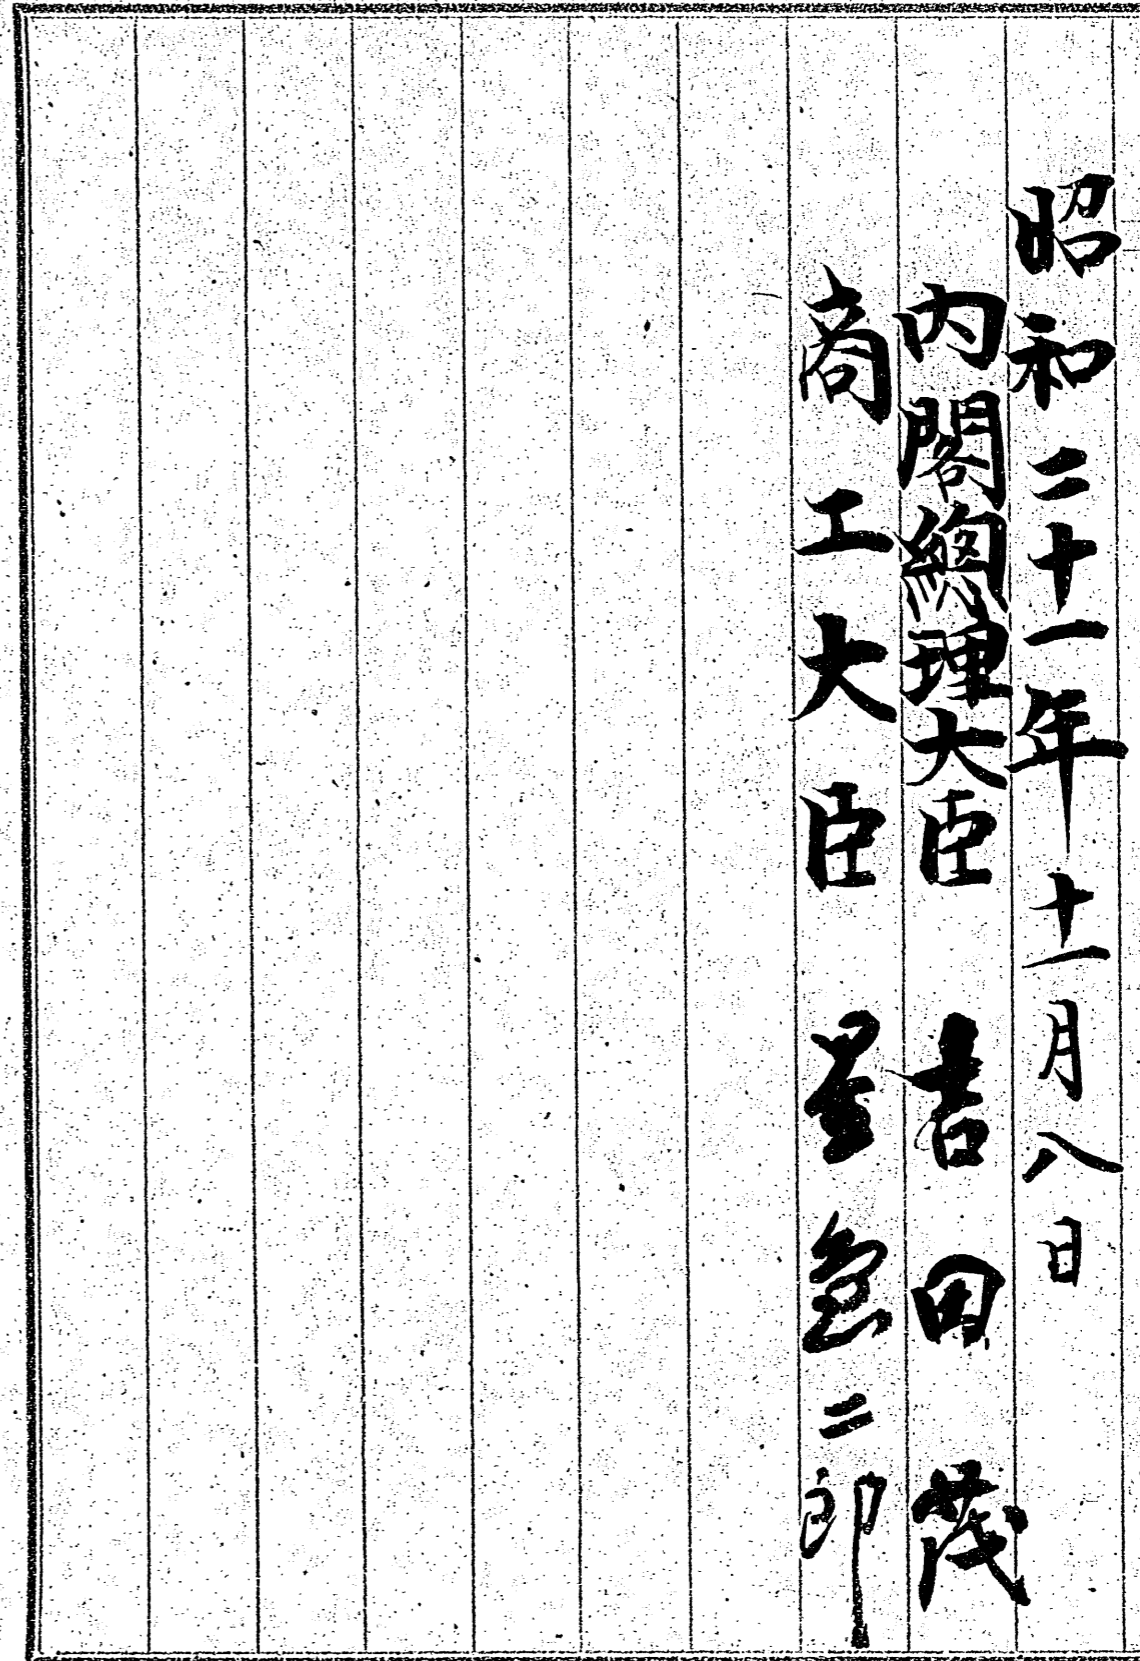 昭和二十一年十一月八日
内閣總理大臣 吉田茂
商工大臣 星島二郎